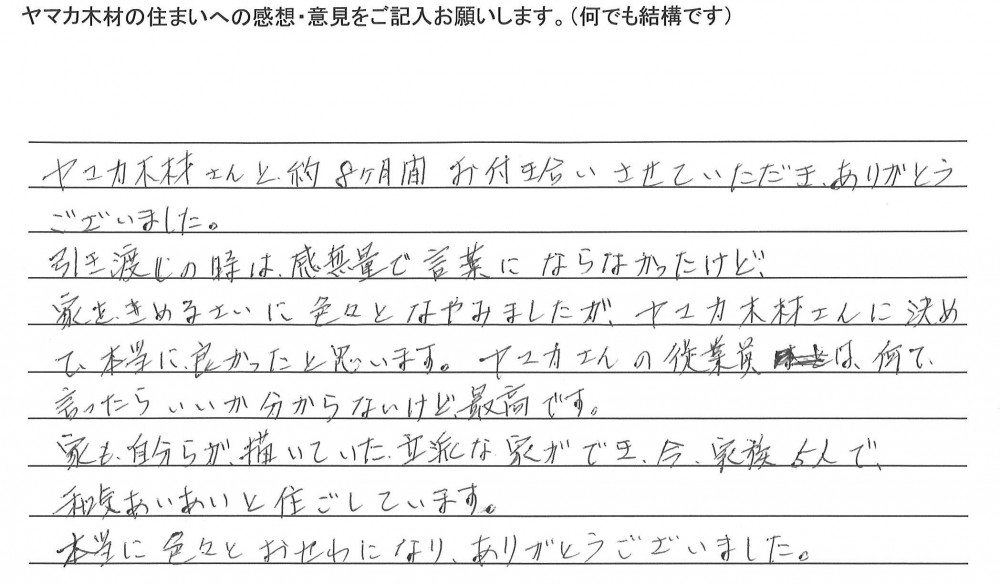 ヤマカ木材の住まいへの感想・意見をご記入お願いします。（何でも結構です）
ヤマカ木材さんと、約8ヶ月間 お付き合いさせていただき、ありがとう
ございました。
引き渡しの時は、感無量で言葉にならなかったけど、
家を、きめるさいに色々となやみましたが、ヤマカ木材さんに決め
て、本当に、良かったと思います。ヤマカさんの従業員は、何て、
言ったらいいか分からないけど、最高です。
家も、自分らが、描いていた、立派な家ができ、今、家族5人で、
和気あいあいと住ごしています。
本当に色々とおせわになり、ありがとうございました。